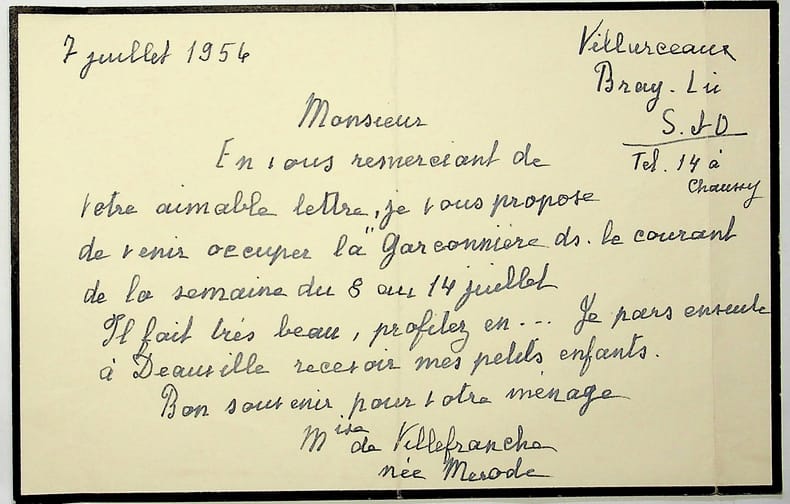 7 juillet 1954
Villarceaux
Bray-Lû
S.&O
Tel. 14 à
Chaussy
Monsieur
En vous remerciant de
votre aimable lettre, je vous propose
de venir occuper la "Garconnière ds. le courant
de la semaine du 8 au 14 juillet
Il fait très beau, profitez en... Je pars ensuite
à Deauville recevoir mes petits enfants.
Bon souvenir pour votre ménage
Mise de Villefranche
née Merode